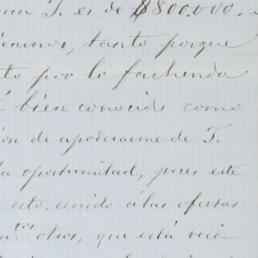 T. es de $800.000.
tanto porque
to por lo fachenda
bien conocido como
ión de apoderarme de T.
oportunidad, pues este
esto, unido á las ofertas
otros, que está reci-